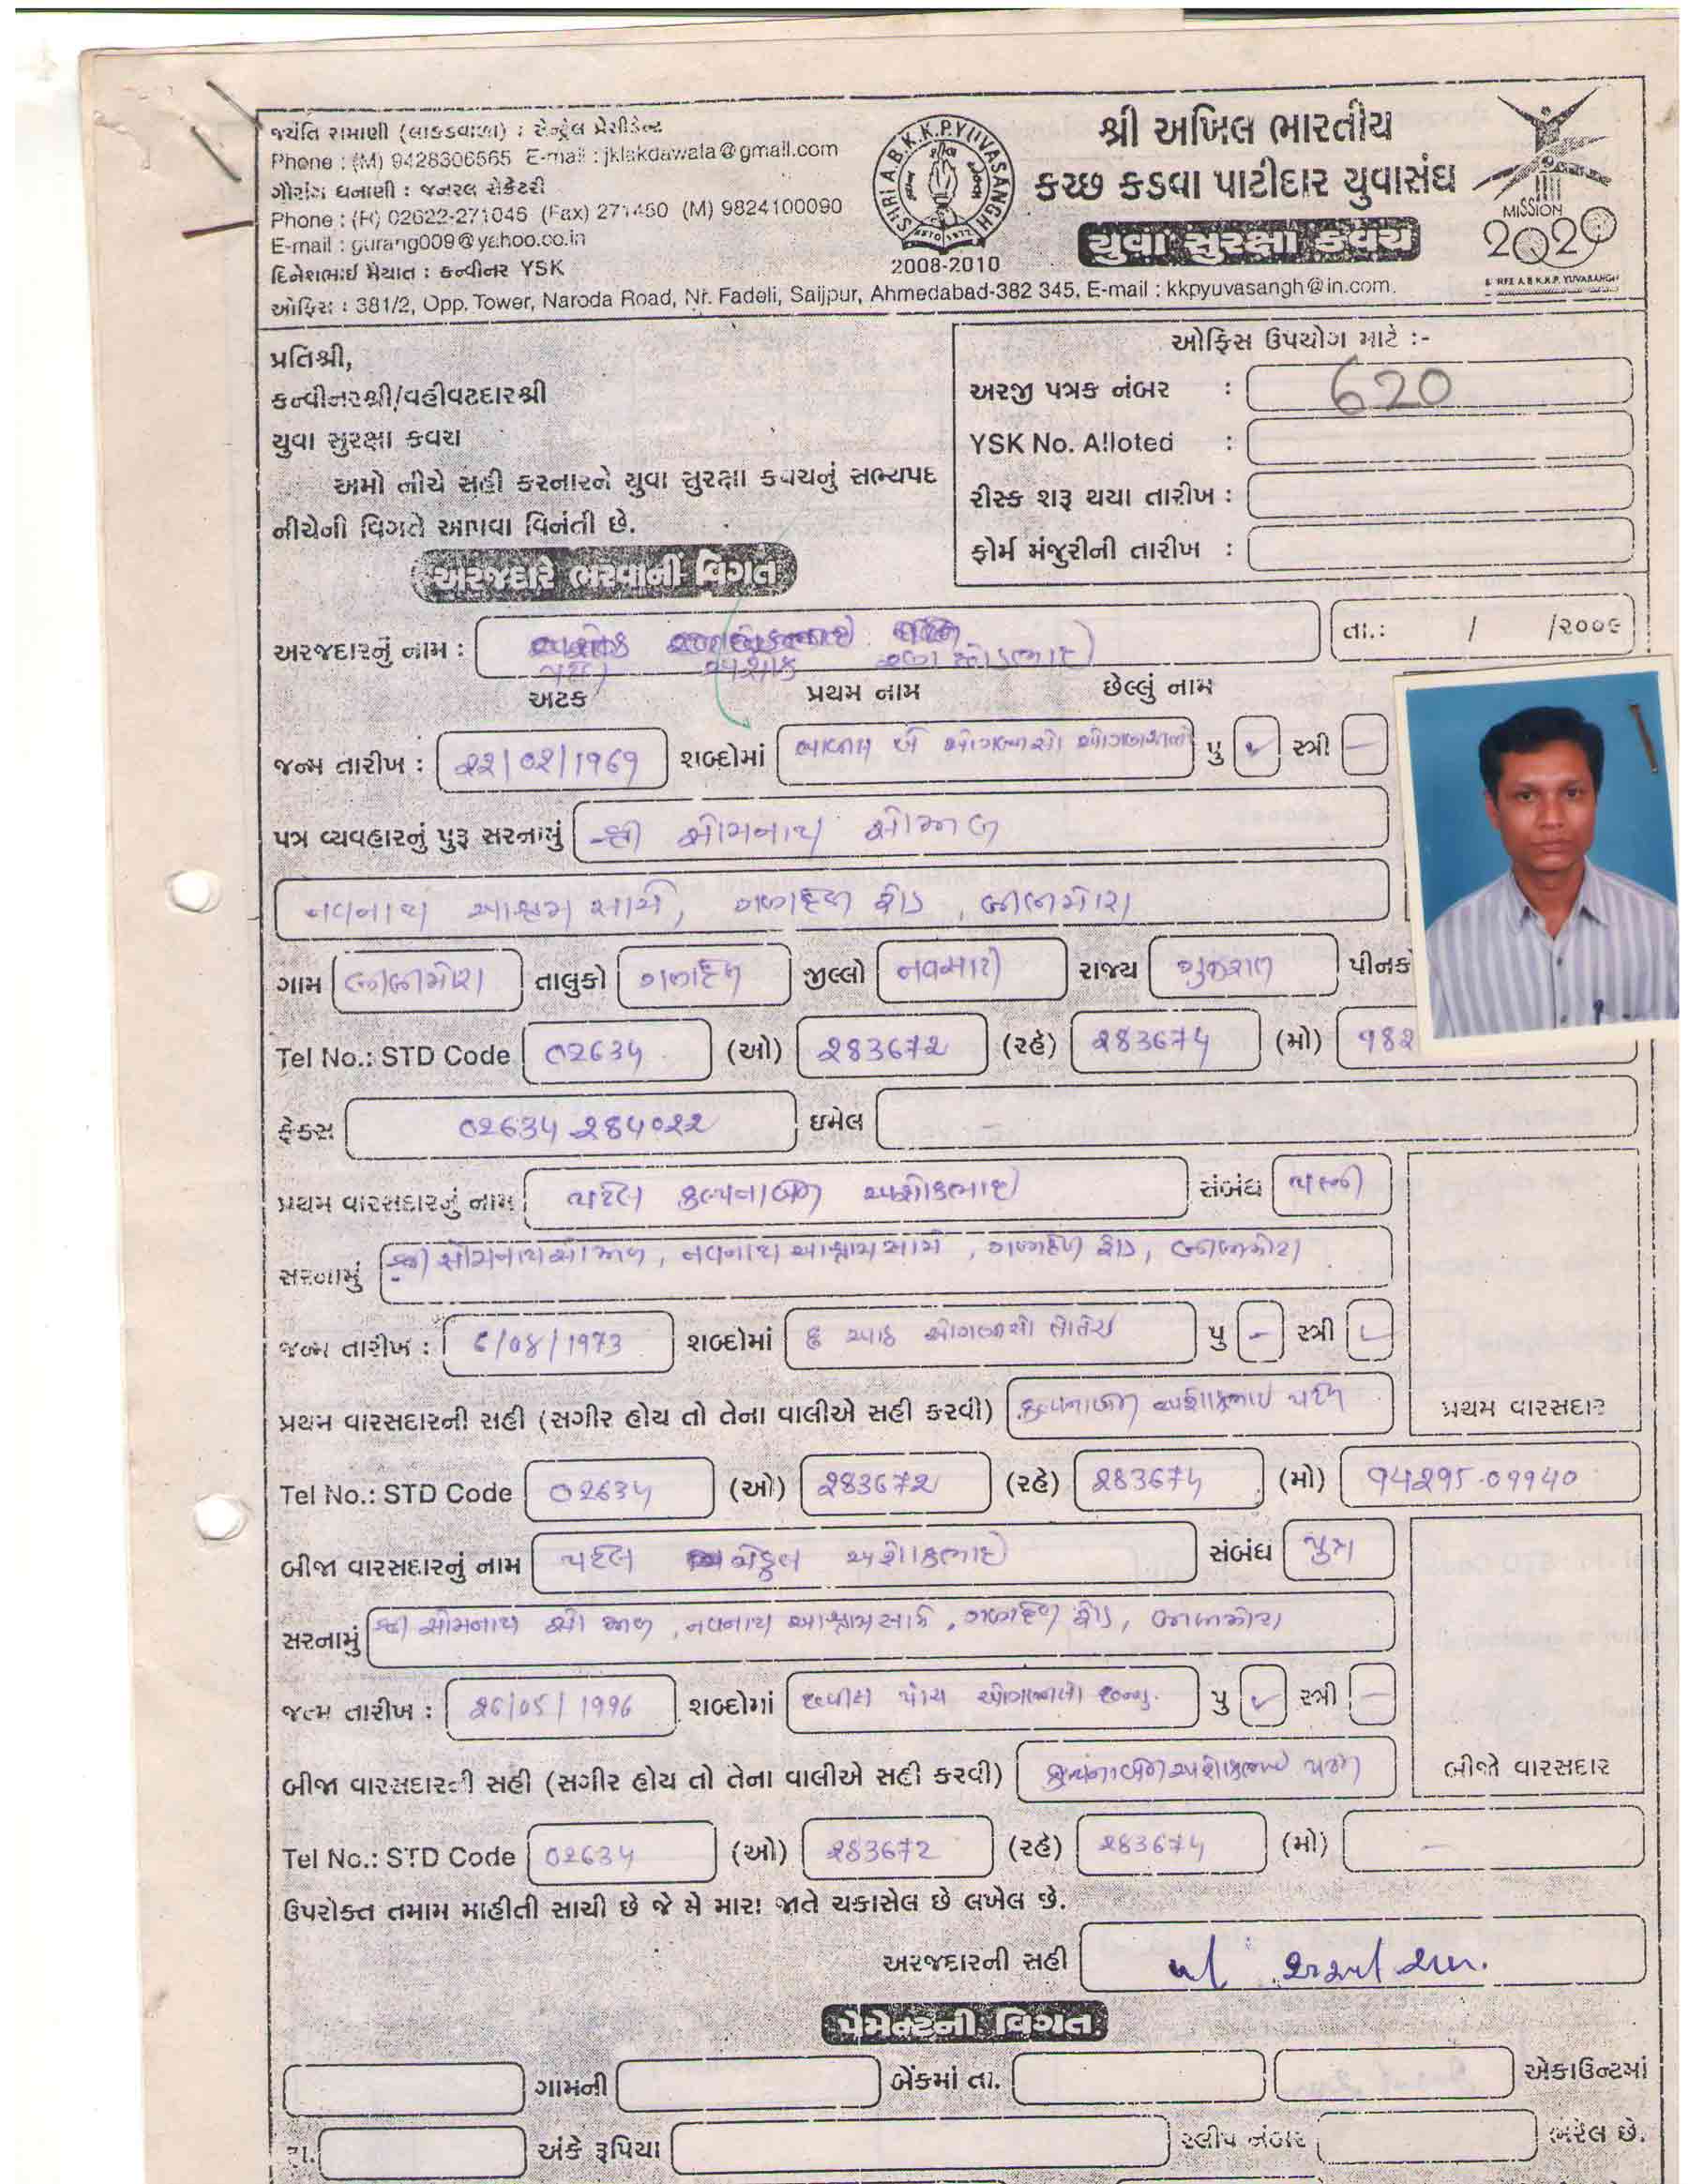 જયંતિ રામાણી (લાકડાવાળા) : સેન્ટ્રલ પ્રેસીડેન્ટ
Phone : (M) 9428306565 E-mail : jklakdawala@gmail.com
ગૌરાંગ ધનાણી : જનરલ સેક્રેટરી
Phone : (R) 02622-271046 (Fax) 271450 (M) 9824100090
E-mail : gurang009@yahoo.co.in
દિનેશભાઈ મૈયાત : કન્વીનર YSK
ઓફિસ : 381/2, Opp. Tower, Naroda Road, Nr. Fadeli, Saijpur, Ahmedabad-382 345. E-mail : kkpyuvasangh@in.com.
SHRI A.B.K.K.P. YUVASANGH
2008-2010
શ્રી અખિલ ભારતીય
કચ્છ કડવા પાટીદાર યુવાસંઘ
યુવા સુરક્ષા કવચ
MISSION
2020
SHREE A.B.K.K.P. YUVASANGH
પ્રતિશ્રી,
કન્વીનરશ્રી/વહીવટદારશ્રી
યુવા સુરક્ષા કવચ
અમો નીચે સહી કરનારને યુવા સુરક્ષા કવચનું સભ્યપદ
નીચેની વિગતે આપવા વિનંતી છે.
ઓફિસ ઉપયોગ માટે :-
અરજી પત્રક નંબર : 620
YSK No. Alloted :
રીસ્ક શરૂ થયા તારીખ :
ફોર્મ મંજુરીની તારીખ :
અરજદારે ભરવાની વિગત
અરજદારનું નામ : અશોક
તા.: / /૨૦૦૯
અટક પ્રથમ નામ છેલ્લું નામ
જન્મ તારીખ : ૨૨/૦૨/1969 શબ્દોમાં પુ ✓ સ્ત્રી –
પત્ર વ્યવહારનું પુરૂ સરનામું શ્રી સોમનાથ સો મીલ
નવનાથ આશ્રમ સામે, ગણદેવી રોડ, બીલીમોરા
ગામ બીલીમોરા તાલુકો ગણદેવી જીલ્લો નવસારી રાજ્ય ગુજરાત પીનકો
Tel No.: STD Code 02634 (ઓ) ૨83672 (રહે) ૨83674 (મો) 98૨
ફેકસ 02634 ૨84૦૨૨ ઇમેલ –
પ્રથમ વારસદારનું નામ પટેલ કલ્પનાબેન અશોકભાઈ સંબંધ પત્ની
સરનામું શ્રી સોમનાથ સો મીલ, નવનાથ આશ્રમ સામે, ગણદેવી રોડ, બીલીમોરા
જન્મ તારીખ : 6/08/1973 શબ્દોમાં છ આઠ ઓગણીસો તોતેર પુ – સ્ત્રી ✓
પ્રથમ વારસદારની સહી (સગીર હોય તો તેના વાલીએ સહી કરવી) કલ્પનાબેન અશોકભાઈ પટેલ
પ્રથમ વારસદાર
Tel No.: STD Code 0૨634 (ઓ) ૨8367૨ (રહે) ૨83674 (મો) 94૨95 09940
બીજા વારસદારનું નામ પટેલ અશોકભાઈ સંબંધ પુત્ર
સરનામું શ્રી સોમનાથ સો મીલ, નવનાથ આશ્રમ સામે, ગણદેવી રોડ, બીલીમોરા
જન્મ તારીખ : ૨6/05/1996 શબ્દોમાં છવીસ પાંચ ઓગણીસો છન્નુ. પુ ✓ સ્ત્રી –
બીજા વારસદારની સહી (સગીર હોય તો તેના વાલીએ સહી કરવી) કલ્પનાબેન અશોકભાઈ પટેલ
બીજો વારસદાર
Tel No.: STD Code 02634 (ઓ) ૨83672 (રહે) ૨83674 (મો) –
ઉપરોક્ત તમામ માહીતી સાચી છે જે મે મારા જાતે ચકાસેલ છે લખેલ છે.
અરજદારની સહી
પેમેન્ટની વિગત
ગામની બેંકમાં તા. એકાઉન્ટમાં
રૂા. અંકે રૂપિયા સ્લીપ નંબર ભરેલ છે.